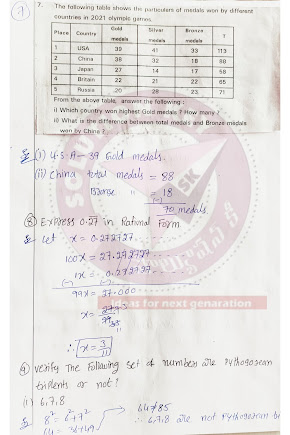 7
7. The following table shows the particulars of medals won by different
countries in 2021 olympic games.
Place Country Gold medals Silver medals Bronze medals T
1 USA 39 41 33 113
2 China 38 32 18 88
3 Japan 27 14 17 58
4 Britain 22 21 22 65
5 Russia 20 28 23 71
From the above table, answer the following :
i) Which country won highest Gold medals ? How many ?
ii) What is the difference between total medals and Bronze medals
won by China ?
(i) U.S.A - 39 Gold medals.
(ii) China total medals = 88
Bronze " = 18
(-)
70 medals.
⑧ Express 0.27 in Rational Form
Let x = 0.272727.....
100x = 27.272727.....
1x = 0.272727.....
(-) (-)
99x = 27.000
Ideas for next genaration
x = 27/99
∴ x = 3/11
⑨ Verify The following set of numbers are pythagorean
triplents or not?
(i) 6,7,8
8² = 6²+7²
64 = 36+49
64≠85
∴ 6,7,8 are not pythagorean